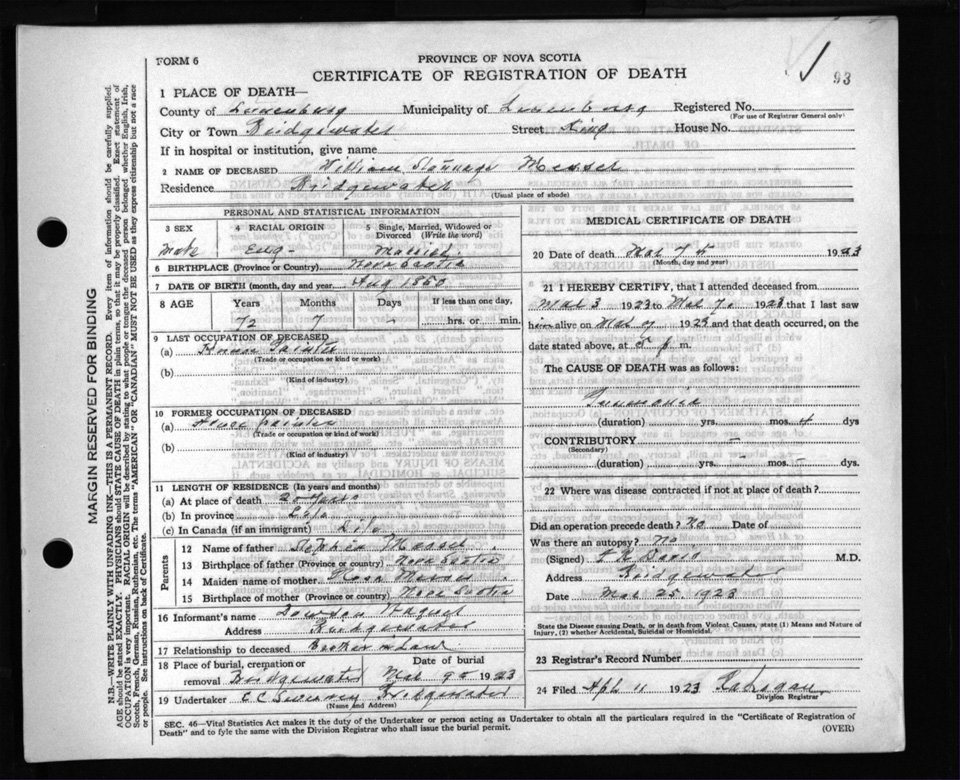 FORM 6
PROVINCE OF NOVA SCOTIA
CERTIFICATE OF REGISTRATION OF DEATH
93
1 PLACE OF DEATH—
County of Lunenburg Municipality of Lunenburg Registered No.
(For use of Registrar General only)
City or Town Bridgewater Street King House No.
If in hospital or institution, give name
2 NAME OF DECEASED William Messel
Residence Bridgewater
(Usual place of abode)
PERSONAL AND STATISTICAL INFORMATION
3 SEX 4 RACIAL ORIGIN 5 Single, Married, Widowed or Divorced (Write the word)
Male Eng- Married
6 BIRTHPLACE (Province or Country) Nova Scotia
7 DATE OF BIRTH (month, day and year) Aug 1850
8 AGE Years Months Days If less than one day,
72 7 - hrs. or min.
9 LAST OCCUPATION OF DECEASED
(a) Painter
(Trade or occupation or kind or work)
(b)
(Kind of industry)
10 FORMER OCCUPATION OF DECEASED
(a) House painter
(Trade or occupation or kind of work)
(b)
(Kind of industry)
11 LENGTH OF RESIDENCE (In years and months)
(a) At place of death years
(b) In province Life
(c) In Canada (if an immigrant)
Parents
12 Name of father
13 Birthplace of father (Province or country) Nova Scotia
14 Maiden name of mother
15 Birthplace of mother (Province or country) Nova Scotia
16 Informant's name
Address Bridgewater
17 Relationship to deceased Brother in Law
18 Place of burial, cremation or Date of burial
removal Bridgewater Mar 9th 1923
19 Undertaker E C Bridgewater
(Name and Address)
MEDICAL CERTIFICATE OF DEATH
20 Date of death Mar 7th 1923
(Month, day and year)
21 I HEREBY CERTIFY, that I attended deceased from
Mar 3 1923 to Mar 7 1923 that I last saw
him alive on Mar 7 1923 and that death occurred, on the
date stated above, at 5 p m.
The CAUSE OF DEATH was as follows:
Pneumonia
(duration) yrs. mos. 4 dys
CONTRIBUTORY -
(Secondary)
(duration) yrs. mos. dys.
22 Where was disease contracted if not at place of death?
Did an operation precede death? No Date of
Was there an autopsy? No
(Signed) Davis M.D.
Address Bridgewater
Date Mar 25 1923
State the Disease causing Death, or in death from Violent Causes, state (1) Means and Nature of
Injury, (2) whether Accidental, Suicidal or Homicidal.
23 Registrar's Record Number
24 Filed Apl 11 1923
Division Registrar
SEC. 46—Vital Statistics Act makes it the duty of the Undertaker or person acting as Undertaker to obtain all the particulars required in the "Certificate of Registration of
Death" and to fyle the same with the Division Registrar who shall issue the burial permit.
(OVER)
MARGIN RESERVED FOR BINDING
N.B.—WRITE PLAINLY WITH UNFADING INK—THIS IS A PERMANENT RECORD. Every item of information should be carefully supplied.
AGE should be stated EXACTLY. PHYSICIANS should STATE CAUSE OF DEATH in plain terms, so that it may be properly classified. Exact statement of
OCCUPATION is very important. RACIAL ORIGIN will be described by stating to what people or tongue the deceased person belonged whether English, Irish,
Scotch, French, German, Russian, Ruthenian, etc. The terms "AMERICAN" OR "CANADIAN" MUST NOT BE USED as they express citizenship but not a race
or people. See instructions on back of Certificate.